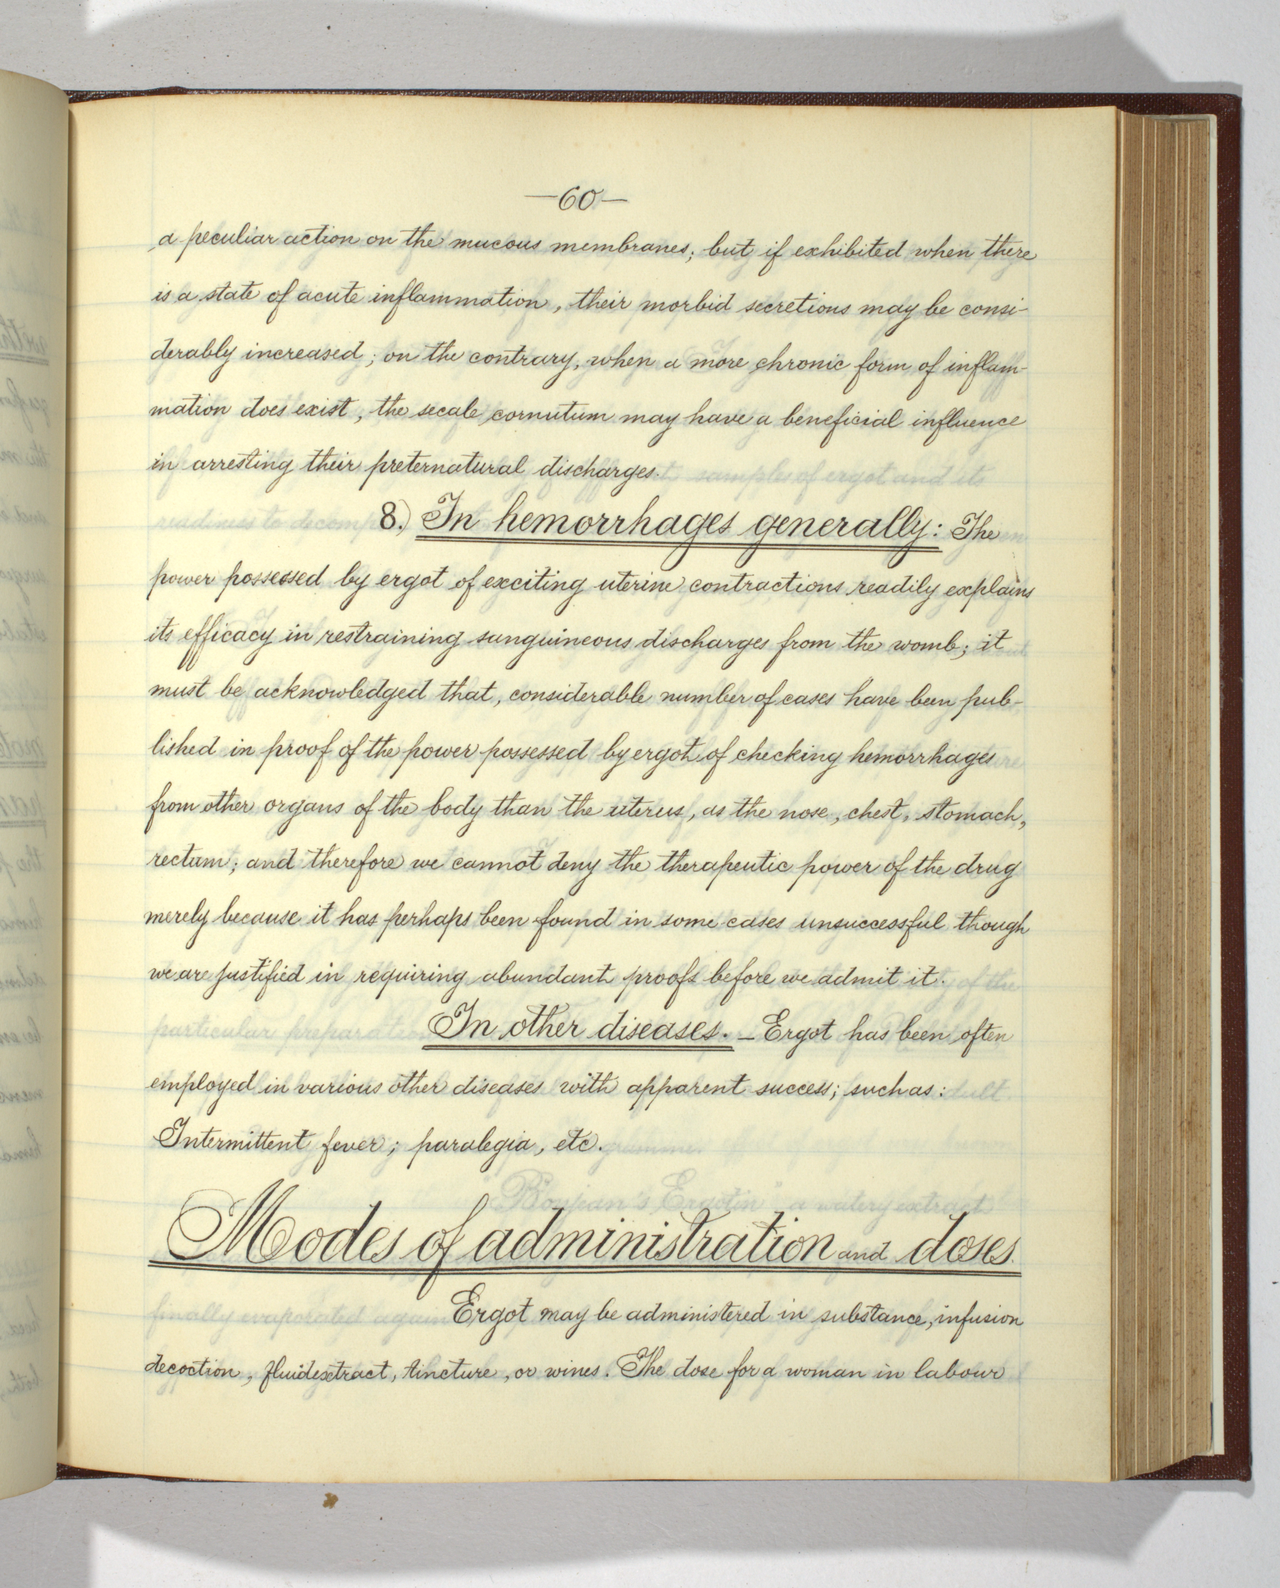 —60—
a peculiar action on the mucous membranes; but if exhibited when there
is a state of acute inflammation, their morbid secretions may be consi-
derably increased; on the contrary, when a more chronic form of inflam-
mation does exist, the secale cornutum may have a beneficial influence
in arresting their preternatural discharges.
8.) In hemorrhages generally: The
power possessed by ergot of exciting uterine contractions readily explains
its efficacy in restraining sanguineous discharges from the womb; it
must be acknowledged that, considerable number of cases have been pub-
lished in proof of the power possessed by ergot of checking hemorrhages
from other organs of the body than the uterus, as the nose, chest, stomach,
rectum; and therefore we cannot deny the therapeutic power of the drug
merely because it has perhaps been found in some cases unsuccessful though
we are justified in requiring abundant proofs before we admit it.
In other diseases. — Ergot has been often
employed in various other diseases with apparent success; such as:
Intermittent fever; paralegia, etc.
Modes of administration and doses.
Ergot may be administered in substance, infusion
decoction, fluidextract, tincture, or wines. The dose for a woman in labour